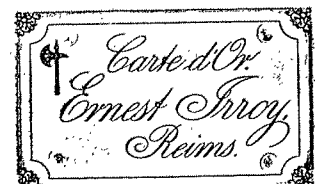 Carte d'Or.
Ernest Irroy,
Reims.